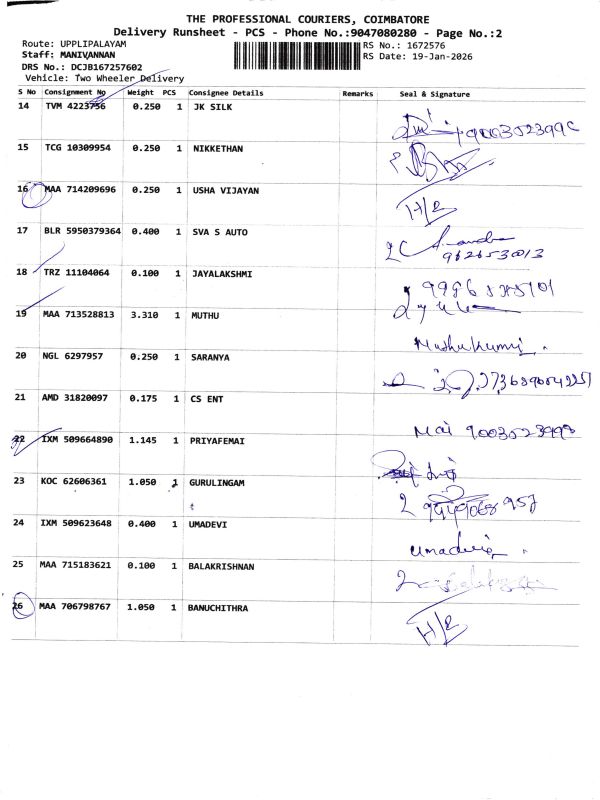 THE PROFESSIONAL COURIERS, COIMBATORE
Delivery Runsheet - PCS - Phone No.:9047080280 - Page No.:2
Route: UPPLIPALAYAM
RS No.: 1672576
Staff: MANIVANNAN
RS Date: 19-Jan-2026
DRS No.: DCJB167257602
Vehicle: Two Wheeler Delivery
S No Consignment No Weight PCS Consignee Details Remarks Seal & Signature
14 TVM 4223756 0.250 1 JK SILK
15 TCG 10309954 0.250 1 NIKKETHAN
16 MAA 714209696 0.250 1 USHA VIJAYAN H/R
17 BLR 5950379364 0.400 1 SVA S AUTO
18 TRZ 11104064 0.100 1 JAYALAKSHMI
19 MAA 713528813 3.310 1 MUTHU Muthukumar
20 NGL 6297957 0.250 1 SARANYA
21 AMD 31820097 0.175 1 CS ENT
22 IXM 509664890 1.145 1 PRIYAFEMAI
23 KOC 62606361 1.050 1 GURULINGAM
24 IXM 509623648 0.400 1 UMADEVI Umadevi
25 MAA 715183621 0.100 1 BALAKRISHNAN
26 MAA 706798767 1.050 1 BANUCHITHRA H/R